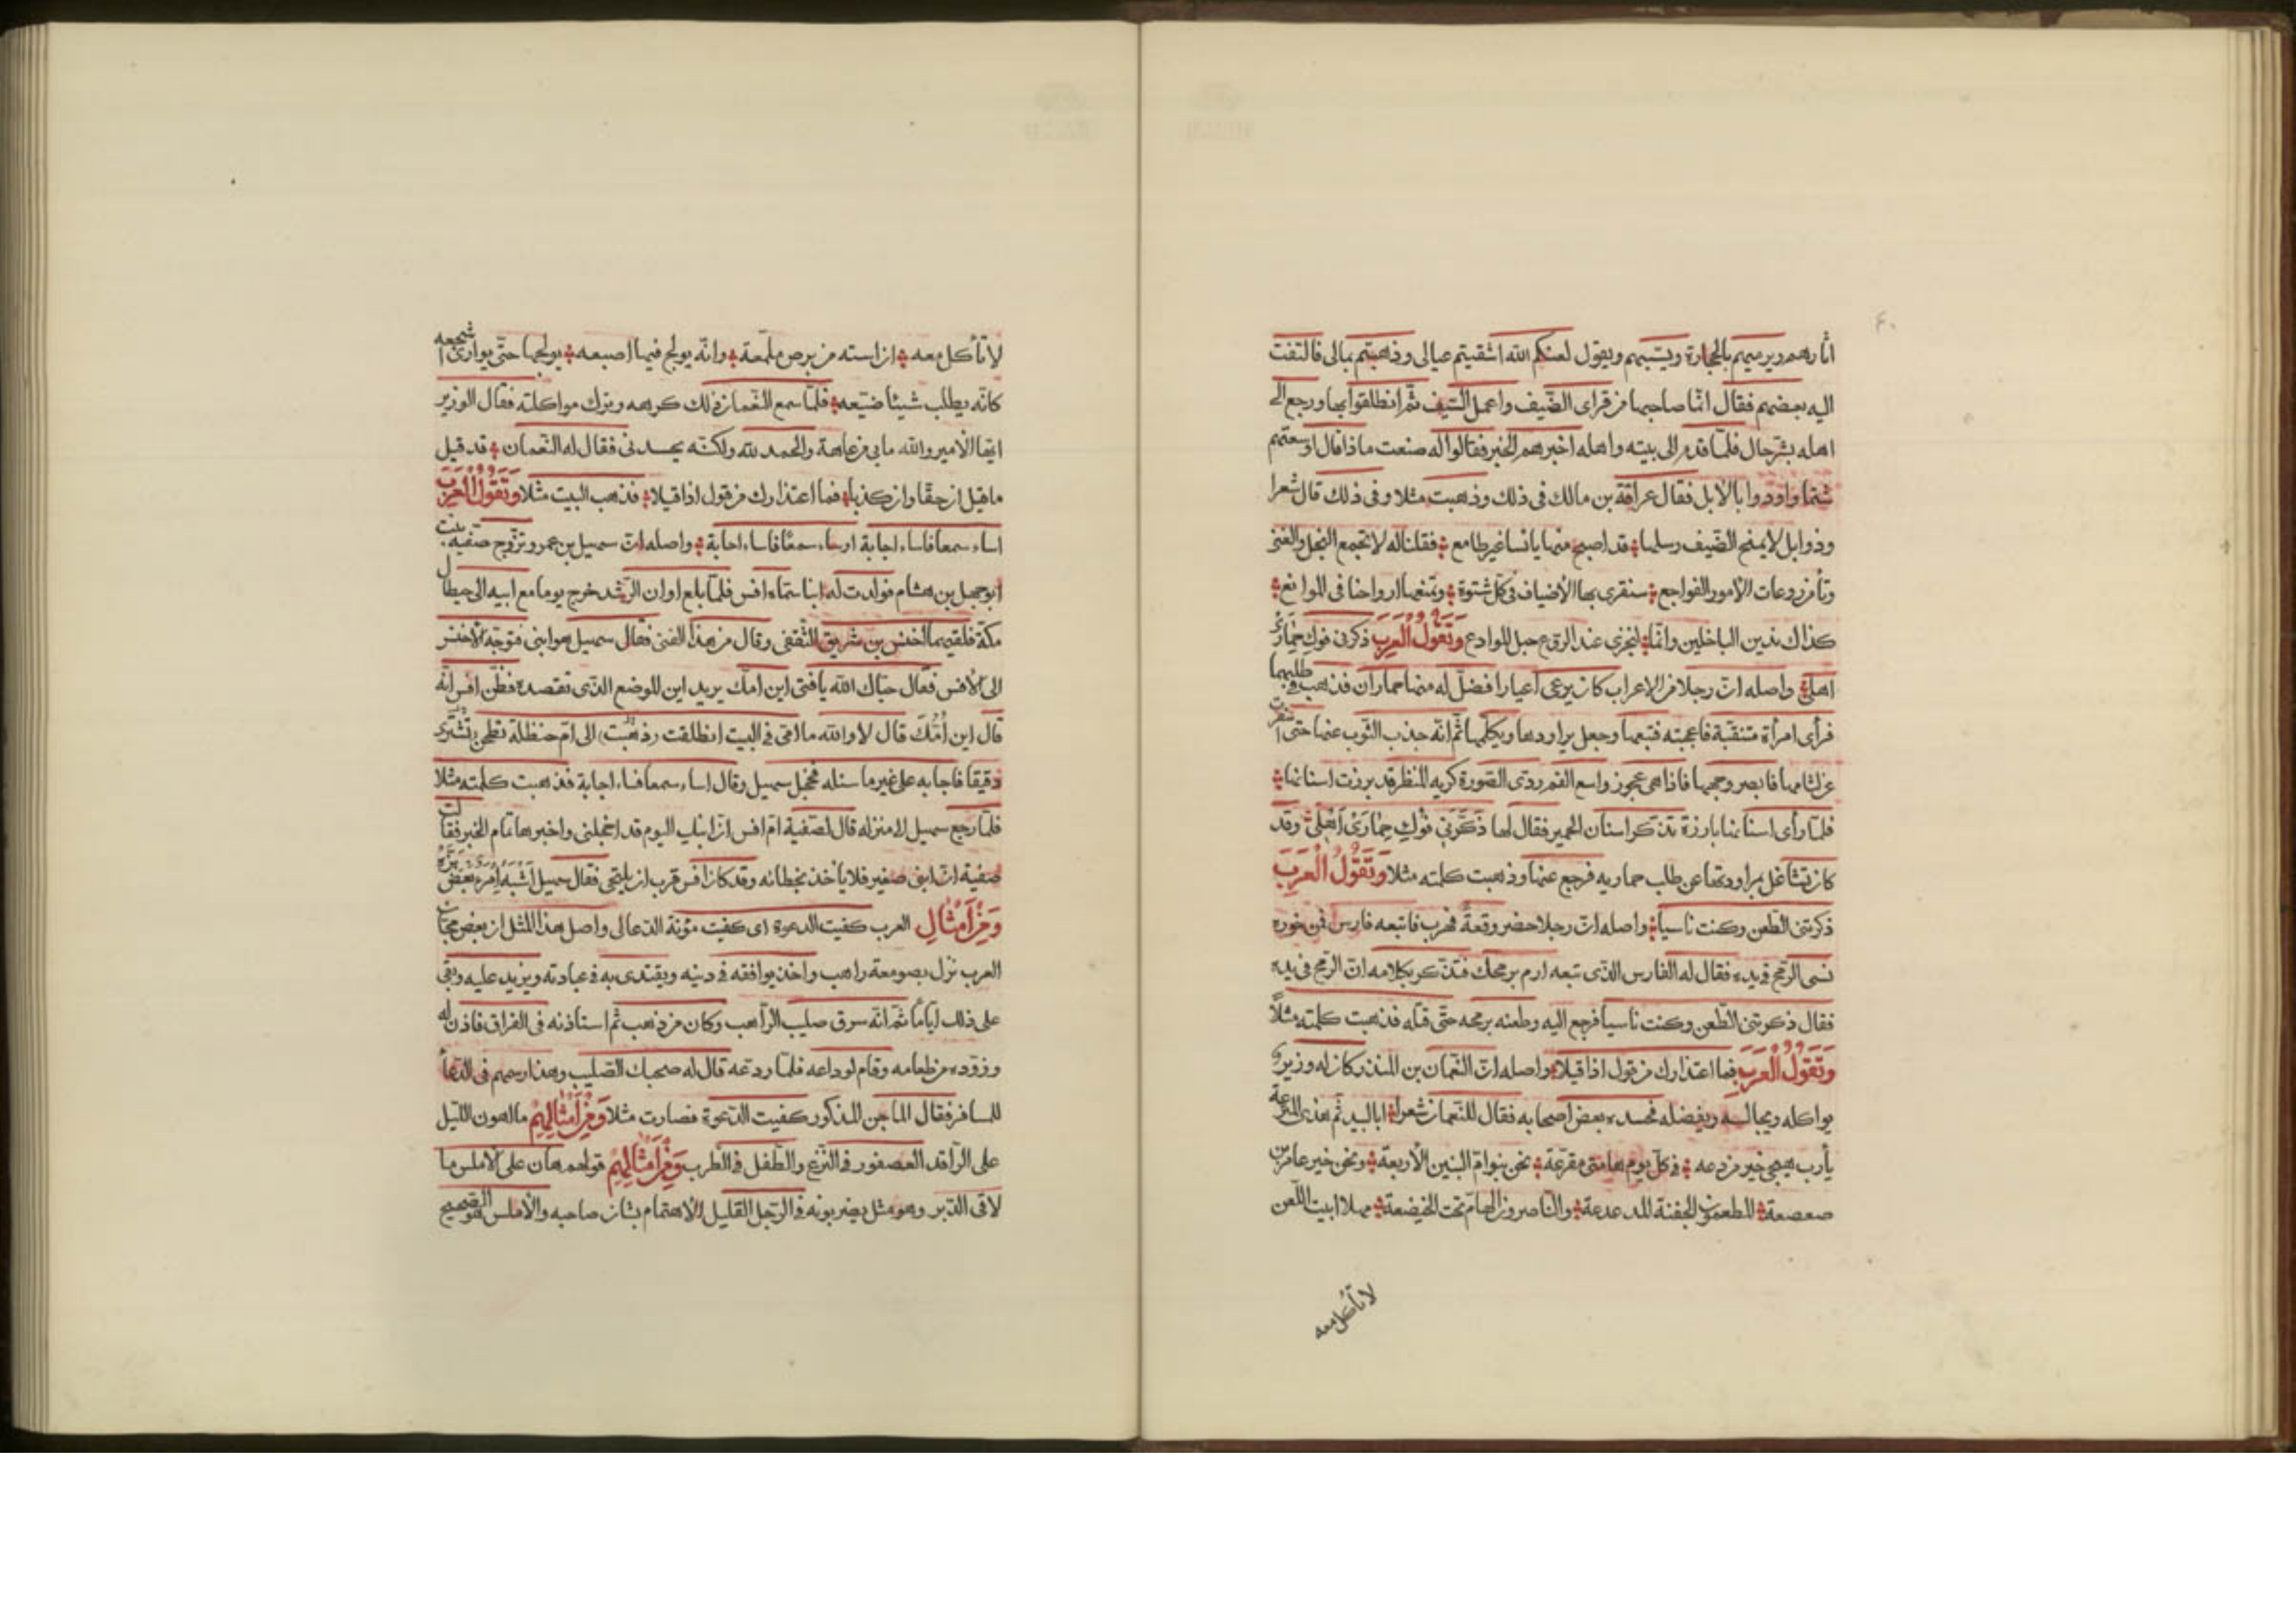 ٤٠
اثارهم ويرميهم بالحجارة ويسبهم ويقول لعنكم الله اشقيتم عيالى وذهبتم بمالى فالتفت
اليه بعضهم فقال انما صاحبها من قراى الضيف واعمل السيف ثم انطلقوا بها ورجع الى
اهله بشرحال فلما قدم الى بيته واهله اخبرهم الخبر فقالوا له صنعت ماذا قال اوسعتهم
شتما واودوا بالابل فقال عرافة بن مالك فى ذلك وذهبت مثلا وفى ذلك قال شعرا
وذو ابل لا يمنح الضيف رسلها قد اصبح منها يائسا غير طامع فقلنا له لا تجمع البخل والغنى
وتأمن روعات الامور الفواجع سنقرى بها الاضياف فى كل شتوة ونتعبها ارواحنا فى المواتع
كذاك ندين الباخلين وانما لنجزى عند الروع حبل الموادع وَتَقُولُ الْعَرَبِ ذكرنى فوك حِمَارَىْ
اهلى واصله ان رجلا من الاعراب كان يرعى اعيارا فضل له منها حماران فذهب فى طلبهما
فرأى امرأة متنقبة فاعجبته فتبعها وجعل يراودها ويكلمها ثم انه جذب الثوب عنها حتى اسفرت
عن لثامها فابصر وجهها فاذا هى عجوز واسع الفم ردى الصورة كريه المنظر قد برزت اسنانها
فلما رأى اسنانها بارزة تذكر اسنان الحمير فقال لها ذَكَّرَنِى فُوْكِ حِمَارَىْ اَهْلِىْ وقد
كان تشاغل بمراودتها عن طلب حماريه فرجع عنها وذهبت كلمته مثلا وَتَقُوْلُ الْعَرَبِ
ذكرتنى الطعن وكنت ناسيا واصله ان رجلا حضر وقعةً فهرب فاتبعه فارس فمن خوره
نسى الرمح فى يده فقال له الفارس الذى تبعه ارم برمحك فتذكر بكلامه ان الرمح فى يده
فقال ذكرتنى الطعن وكنت ناسيا فرجع اليه وطعنه برمحه حتى قتله فذهبت كلمته مثلًا
وَتَقُوْلُ الْعَرَبِ فما اعتذارك من قول اذا قيلا واصله ان النعمان بن المنذر كان له وزير
يواكله ويجالسه ويفضله فحسده بعض اصحابه فقال للنعمان شعرا ابا لبيد ثم هذى المنزعة
يأرب هيجى خير من دعه فى كل يوم هامتى مقرعة نحن بنو ام البنين الاربعة ونحن خير عامر بن
صعصعة المطعمون الجفنة المدعدعة والناصرون الهام تحت الخيضعة مهلا ابيت اللعن
لا تأكل معه
لا تأكل معه ان استه من برص ملمعة وانه يولج فيها اصبعه يولجها حتى يوارى اشجعه
كانه يطلب شيئا ضيّعه فلما سمع النعمان ذلك كرهه وترك مواكلته فقال الوزير
ايها الامير والله مابى من عاهة والحمد لله ولكنه يحسدنى فقال له النعمان قد قيل
ما قيل ان حقا وان كذبا فما اعتذارك من قول اذا قيلا فذهب البيت مثلا وَتَقُوْلُ الْعَرَبِ
اساء سمعا فاساء اجابة اوساء سمعًا فاساء اجابة واصله ان سهيل بن عمرو تزوج صفيه بنت
ابو جهل بن هشام فولدت له ابنا سماه افس فلما بلغ اوان الرشد خرج يوما مع ابيه الى حيطال
مكة فلقيهما اخنس بن شريق الثقفى وقال من هذا الفتى فقال سهيل هو ابنى فتوجه الاخنس
الى الافس فقال حياك الله يا فتى اين امك يريد اين الموضع الذى تقصده فظن افس انه
قال اين اُمُّكَ قال لا والله ما امى فى البيت انطلقت (ذهبت) الى ام حنظلة تطحن تشترى
دقيقا فاجابه على غير ما سئله فخجل سهيل وقال اساء سمعا فساء اجابة فذهبت كلمته مثلا
فلما رجع سهيل الى منزله قال لصفية ام افس ان ابنك اليوم قد اخجلنى واخبرها تمام الخبر فقالت
صفية ان ابنى صغير فلا ياخذ بخطائه وقد كان افس قرب ان يلتحى فقال سهيل اَشْبَهَ اِمْرَءٌ بَعْضَ بَزِّهِ
وَمِنْ اَمْثَالِ العرب كفيت الدعوة اى كفيت مؤنة الدعالى واصل هذا المثل ان بعض مجان
العرب نزل بصومعة راهب واخذ يوافقه فى دينه ويقتدى به فى عبادته ويزيد عليه وبقى
على ذلك اياما ثم انه سرق صليب الراهب وكان من ذهب ثم استاذنه فى الفراق فاذن له
وزوده من طعامه وقام لوداعه فلما ودعه قال له صحبك الصليب وهذا رسمهم فى الدعا
للمسافر فقال الماجن المذكور كفيت الدعوة فصارت مثلا وَمِنْ اَمْثَالِهِمْ ما اهون الليل
على الراقد العصفور فى النزع والطفل فى الطرب وَمِنْ اَمْثَالِهِمْ قولهم هان على الاملس ما
لاقى الدبر وهو مثل يضربونه فى الرجل القليل الاهتمام بشان صاحبه والاملس هو الصحيح